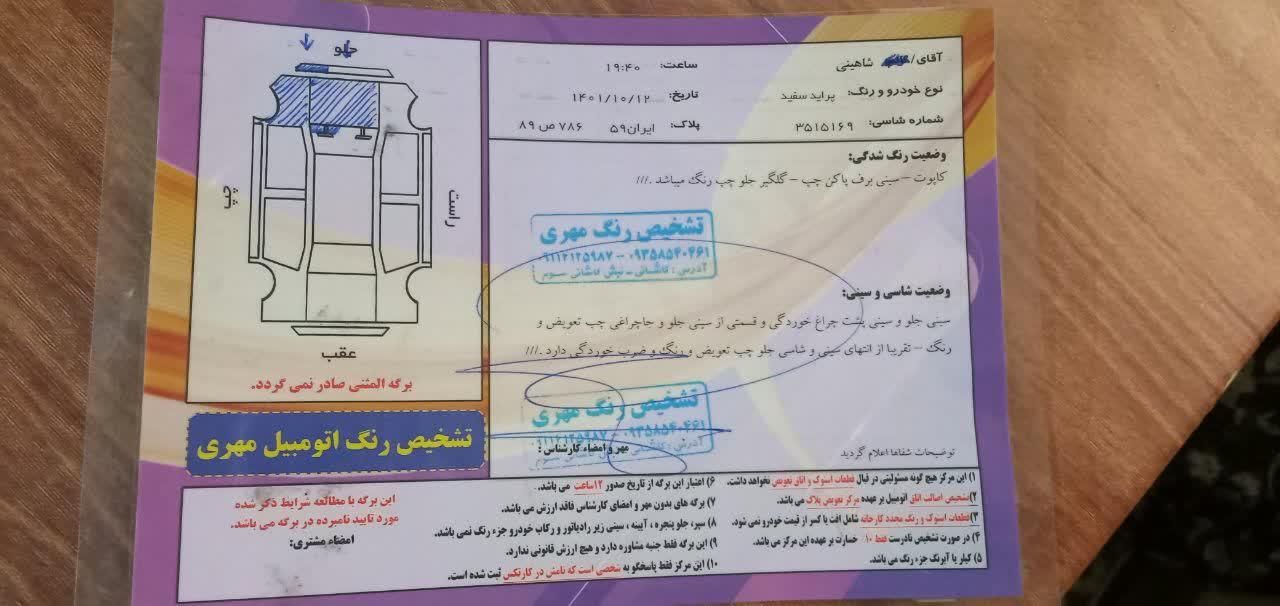 آقای/ شاهینی
ساعت: ۱۹:۴۰
نوع خودرو و رنگ: پراید سفید
تاریخ: ۱۴۰۱/۱۰/۱۲
شماره شاسی: ۳۵۱۵۱۶۹
پلاک: ایران۵۹ ۷۸۶ ص ۸۹
وضعیت رنگ شدگی:
کاپوت – سینی برف پاکن چپ – گلگیر جلو چپ رنگ میباشد .///
تشخیص رنگ مهری
۰۹۱۱۲۱۲۵۹۸۷ – ۰۹۳۵۸۵۴۰۴۶۱
آدرس : کاشانی ـ نبش کاشانی سوم
وضعیت شاسی و سینی:
سینی جلو و سینی پشت چراغ خوردگی و قسمتی از سینی جلو و جاچراغی چپ تعویض و
رنگ – تقریبا از انتهای سینی و شاسی جلو چپ تعویض و رنگ و ضرب خوردگی دارد .///
تشخیص رنگ مهری
۰۹۱۱۲۱۲۵۹۸۷ – ۰۹۳۵۸۵۴۰۴۶۱
مهر و امضاء کارشناس :
توضیحات شفاها اعلام گردید
جلو
چپ
راست
عقب
برگه المثنی صادر نمی گردد.
تشخیص رنگ اتومبیل مهری
۱) این مرکز هیچ گونه مسئولیتی در قبال قطعات استوک و اتاق تعویض نخواهد داشت.
۲) تشخیص اصالت اتاق اتومبیل بر عهده مرکز تعویض پلاک می باشد.
۳) قطعات استوک و رنگ مجدد کارخانه شامل افت یا کسر از قیمت خودرو نمی شود.
۴) در صورت تشخیص نادرست فقط ۱۰ خسارت بر عهده این مرکز می باشد.
۵) کیلر یا آبرنگ جزء رنگ می باشد.
۶) اعتبار این برگه از تاریخ صدور ۱۲ساعت می باشد.
۷) برگه های بدون مهر و امضای کارشناس فاقد ارزش می باشد.
۸) سپر، جلو پنجره ، آیینه ، سینی زیر رادیاتور و رکاب خودرو جزء رنگ نمی باشد.
۹) این برگه فقط جنبه مشاوره دارد و هیچ ارزش قانونی ندارد.
۱۰) این مرکز فقط پاسخگو به شخصی است که نامش در کارتکس ثبت شده است.
این برگه با مطالعه شرایط ذکر شده
مورد تایید نامبرده در برگه می باشد.
امضاء مشتری: